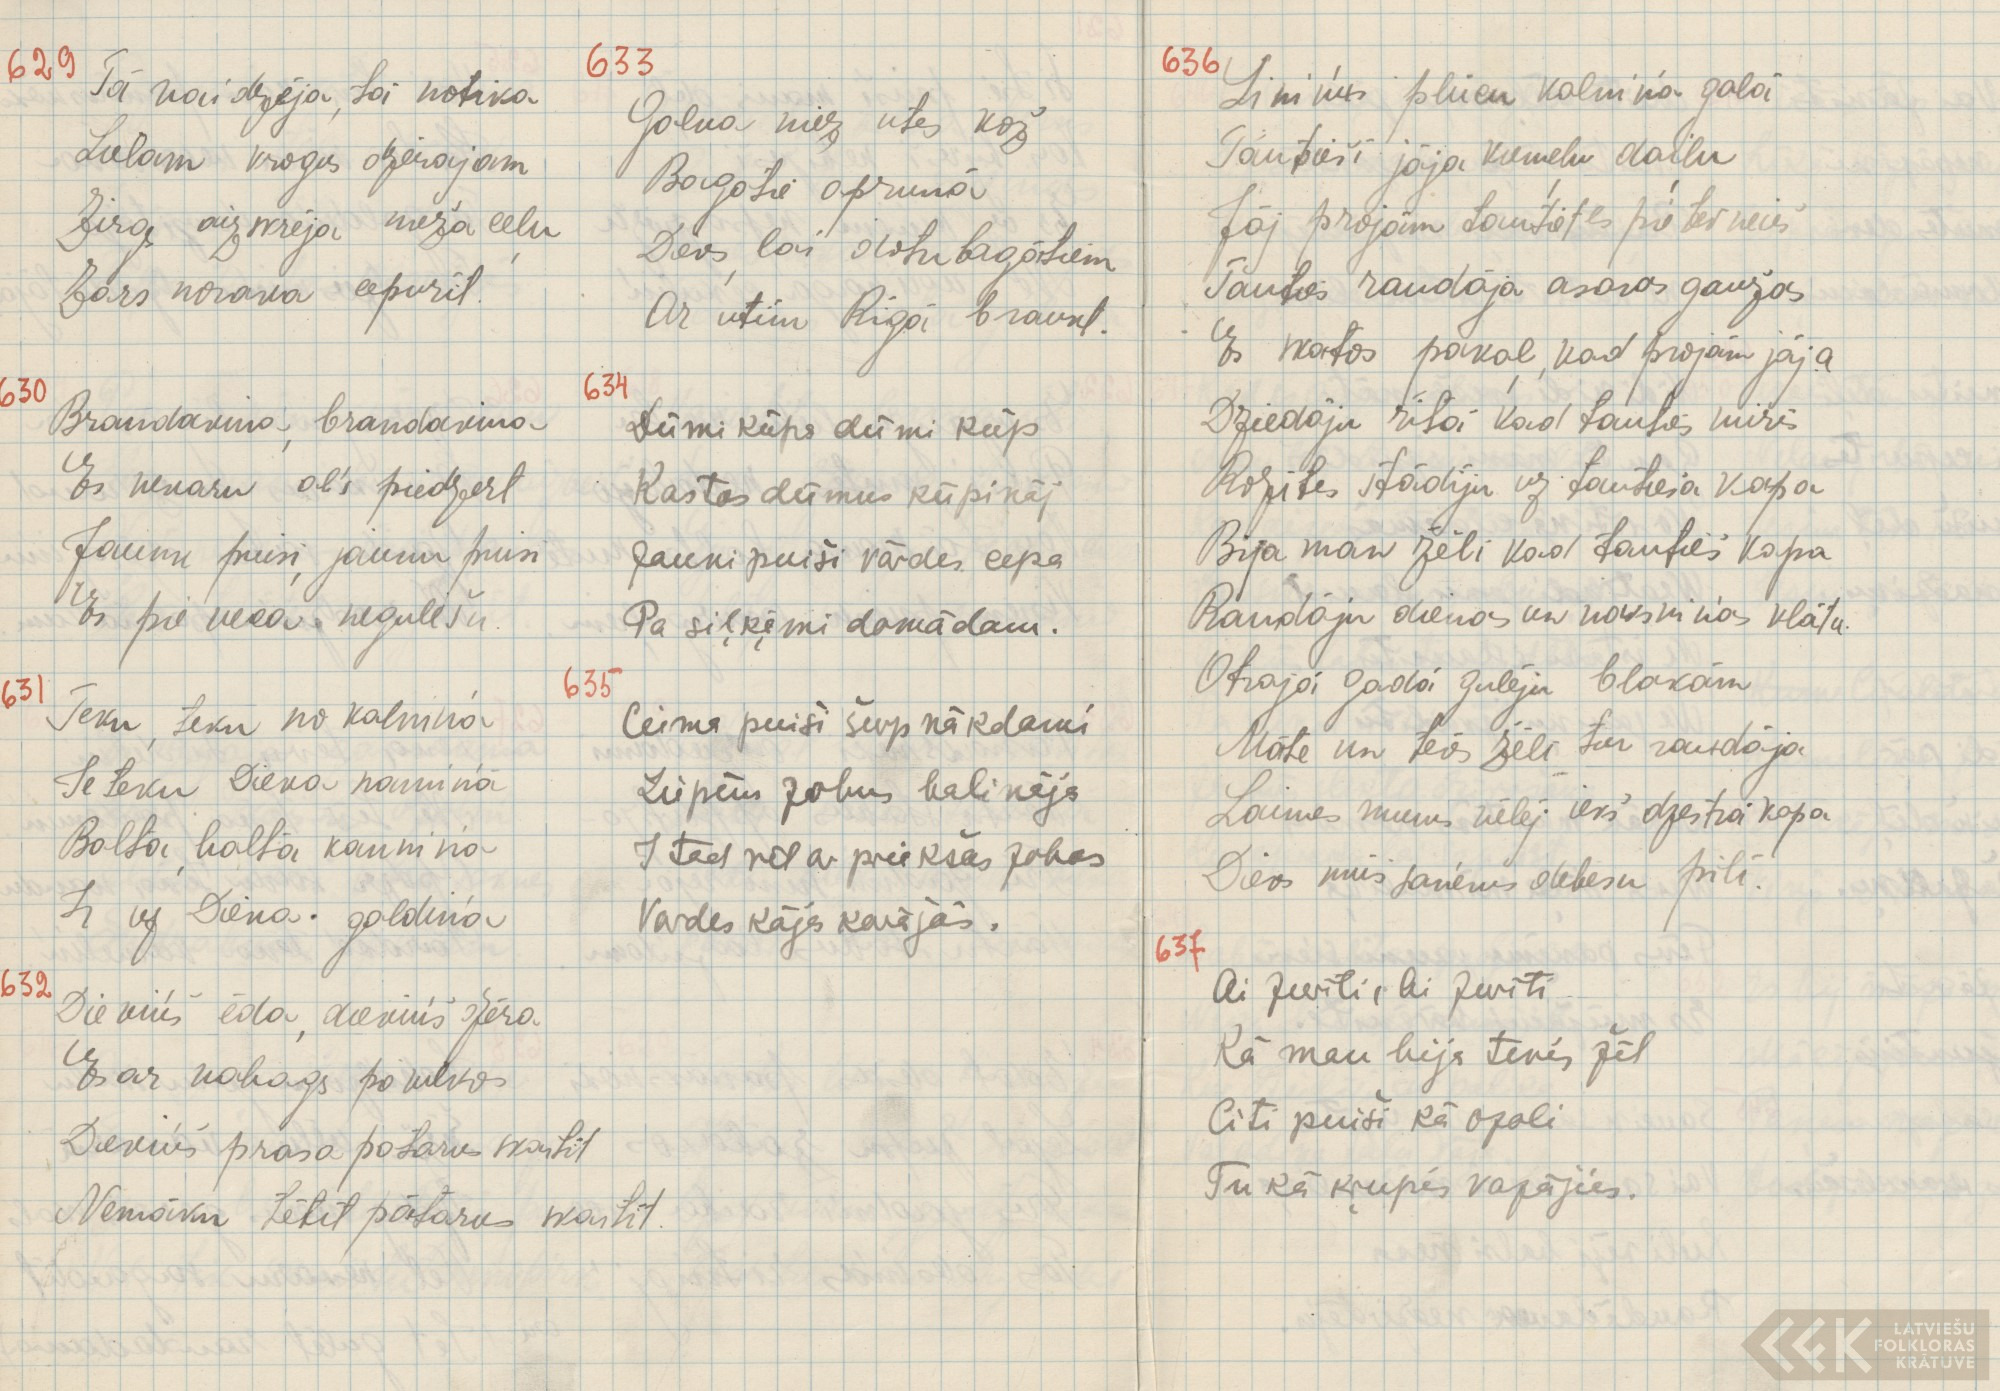 629
Tā vaidzēja, tai notika
Lelam krogus dzērajam
Zirgs aizskrēja meža celu
Zars norava cepurīt.
630
Brandavina, brandavina
Es nevaru ol's piedzert
Jaunu puisi, jaunu puisi
Es pie veca negulešu.
631
Teku, teku no kalnina
Ieteku Dieva namina
Bolta, balta kannina
Ir uz Dieva galdina
632
Dievinš ēda, dievinš dzēra
Es ar nabags pavilkos
Dievinš prasa patarus skaitīt
Nemāku tētīt pātarus skaitīt.
633
Golva niez utes kož
Bagotie aprunā
Dievs, lai dotu bagātiem
Ar utīm Rīgā braukt.
634
Dūmi kūpa dūmi kūp
Kas tos dūmus kūpināj
Jauni puiši vārdes cepa
Pa siļķēmi domādam.
635
Ceima puiši šurp nākdami
Lūpām zobus balināja
I tad vēl ar priekšas zobos
Vardes kājas karājās.
636
Lininus plucu kalnina galā
Tautieši jāja kumelu dailu
Jāj projām tautietes pie tevneies
Tautas raudāja asaras gaužas
Es skatos pakaļ, kad projām jāja
Dziedāju rītā kad tautas miris
Rozites stādiju uz tautieša kapa
Bija man žēli kad tautiešs kapa
Raudāju dienas un naksninas klātu.
Otrajā gadā gulēju blakām
Māte un tēvs žēli tur raudāja
Laimes mums vēlēj iekš dzestrā kapa
Dievs mūs sanēms debesu pilī.
637
Ai Juriti, Ai Juriti
Kā man bija tevis žēl
Citi puiši kā ozoli
Tu kā kŗupis vazājies.
LATVIEŠU
FOLKLORAS
KRĀTUVE